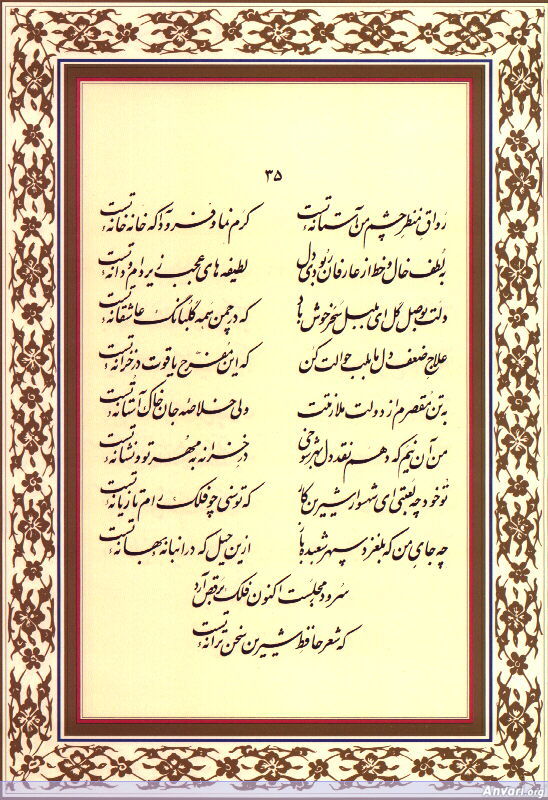 ۳۵
رواق منظر چشم من آستانهٔ تست کرم نما و فرود آ که خانه خانهٔ تست
بلطف خال و خط از عارفان ربودی دل لطیفه های عجب زیر دام و دانهٔ تست
دلت بوصل گل ای بلبل سحر خوش باد که در چمن همه گلبانگ عاشقانهٔ تست
علاج ضعف دل ما بلب حوالت کن که این مفرح یاقوت در خزانهٔ تست
به تن مقصرم از دولت ملازمتت ولی خلاصهٔ جان خاک آستانهٔ تست
من آن نیم که دهم نقد دل بهر شوخی در خزانه به مهر تو و نشانهٔ تست
تو خود چه لعبتی ای شهسوار شیرین کار که توسنی چو فلک رام تازیانهٔ تست
چه جای من که بلغزد سپهر شعبده باز ازین حیل که در انبانهٔ بهانهٔ تست
سرود مجلست اکنون فلک برقص آرد
که شعر حافظ شیرین سخن ترانهٔ تست
Anvari.org